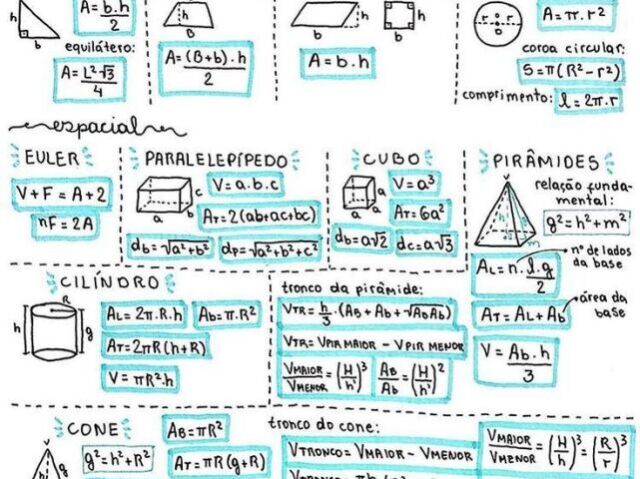 A = b.h/2
h
b
equilátero:
A = L²√3/4
h
B
A = (B+b).h/2
h
b
h
b
A = b.h
r o r
A = π.r²
coroa circular:
S = π(R² - r²)
comprimento: l = 2π.r
espacial
EULER
V + F = A + 2
nF = 2A
PARALELEPÍPEDO
c
b
a
V = a.b.c
AT = 2(ab+ac+bc)
db = √a²+b²
dp = √a²+b²+c²
CUBO
a
a
a
V = a³
AT = 6a²
db = a√2
dc = a√3
PIRÂMIDES
V
h
g
m
relação funda-
mental:
g² = h² + m²
nº de lados
da base
AL = n. l.g/2
AT = AL + Ab
área da
base
V = Ab.h/3
CILÍNDRO
R
h
g
AL = 2π.R.h
Ab = π.R²
AT = 2πR(h+R)
V = πR².h
tronco da pirâmide:
VTR = h/3 . (AB + Ab + √ABAb)
VTR = VPIR MAIOR - VPIR MENOR
VMAIOR/VMENOR = (H/h)³
AB/Ab = (H/h)²
CONE
V
h
g
AB = πR²
g² = h² + R²
AT = πR(g+R)
tronco do cone:
VTRONCO = VMAIOR - VMENOR
VMAIOR/VMENOR = (H/h)³ = (R/r)³